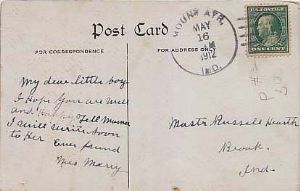 Post Card
FOR CORRESPONDENCE
FOR ADDRESS ONLY
MOUNT AYR
MAY
16
1912
IND.
ONE CENT
My dear little boy
I Hope You are well
and Tell Mamma
I will write soon
to Her Ever friend
Mrs Mary
Mastr Russell Hearth
Brook
Ind.